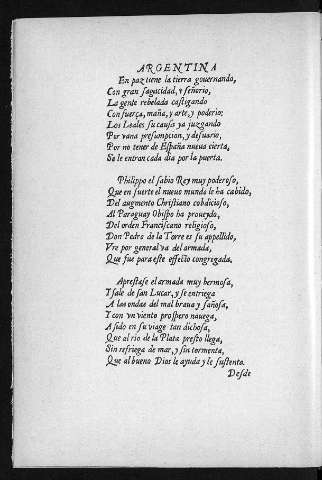 ARGENTINA
En paz tiene la tierra gouernando,
Con gran sagacidad, y señorio,
La gente rebelada castigando
Con fuerça, maña, y arte, y poderio:
Los Leales su causa ya juzgando
Por vana presumpcion, y desuario,
Por no tener de España nueua cierta,
Se le entran cada dia por la puerta.

Philippo el sabio Rey muy poderoso,
Que en suerte el nueuo mundo le ha cabido,
Del augmento Christiano cobdicioso,
Al Paraguay Obispo ha proueydo,
Del orden Franciscano religioso,
Don Pedro de la Torre es su appellido,
Vre por general va del armada,
Que fue para este effecto congregada.

Aprestase el armada muy hermosa,
Y sale de san Lucar, y se entriega
A las ondas del mal braua y sañosa,
Y con vn viento prospero nauega,
A sido en su viage tan dichosa,
Que al rio de la Plata presto llega,
Sin refriega de mar, y sin tormenta,
Que al bueno Dios le ayuda y le sustenta.
Desde